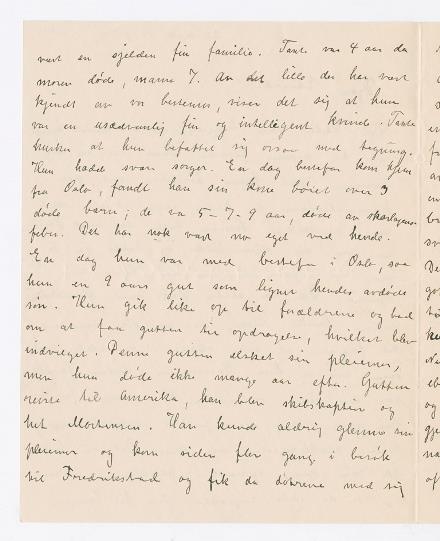 vært en sjelden fin familie. Tante var 4 aar da
moren døde, mama 7. An det lille der har vært
kjendt av vor bestemor, viser det sig at hun
var en usædvanlig fin og intelligent kvinde. Tante
husker at hun befattet sig ogsaa med tegning.
Hun hadde svære sorger. En dag bestefar kom hjem
fra Oslo, fandt han sin kone bøiet over 3
døde barn; de va 5-7-9 aar, døde av skarlagens-
feber. Det har nok vært noe eget ved hende.
En dag hun var med bestefar i Oslo, saa
hun en 9 aars gut som lignet hendes avdøde
søn. Hun gik like op til forældrene og bad
om at faa gutten til opdragelse, hvilket blev
indvilget. Denne gutten elsket sin pleiemor,
men hun døde ikke mange aar efter. Gutten
reiste til Amerika, han blev skibskaptein og
het Mortensen. Han kunde aldrig glemme sin
pleiemor og kom siden fler gang i besøk
til Fredriksstad og fik da døtrene med sig